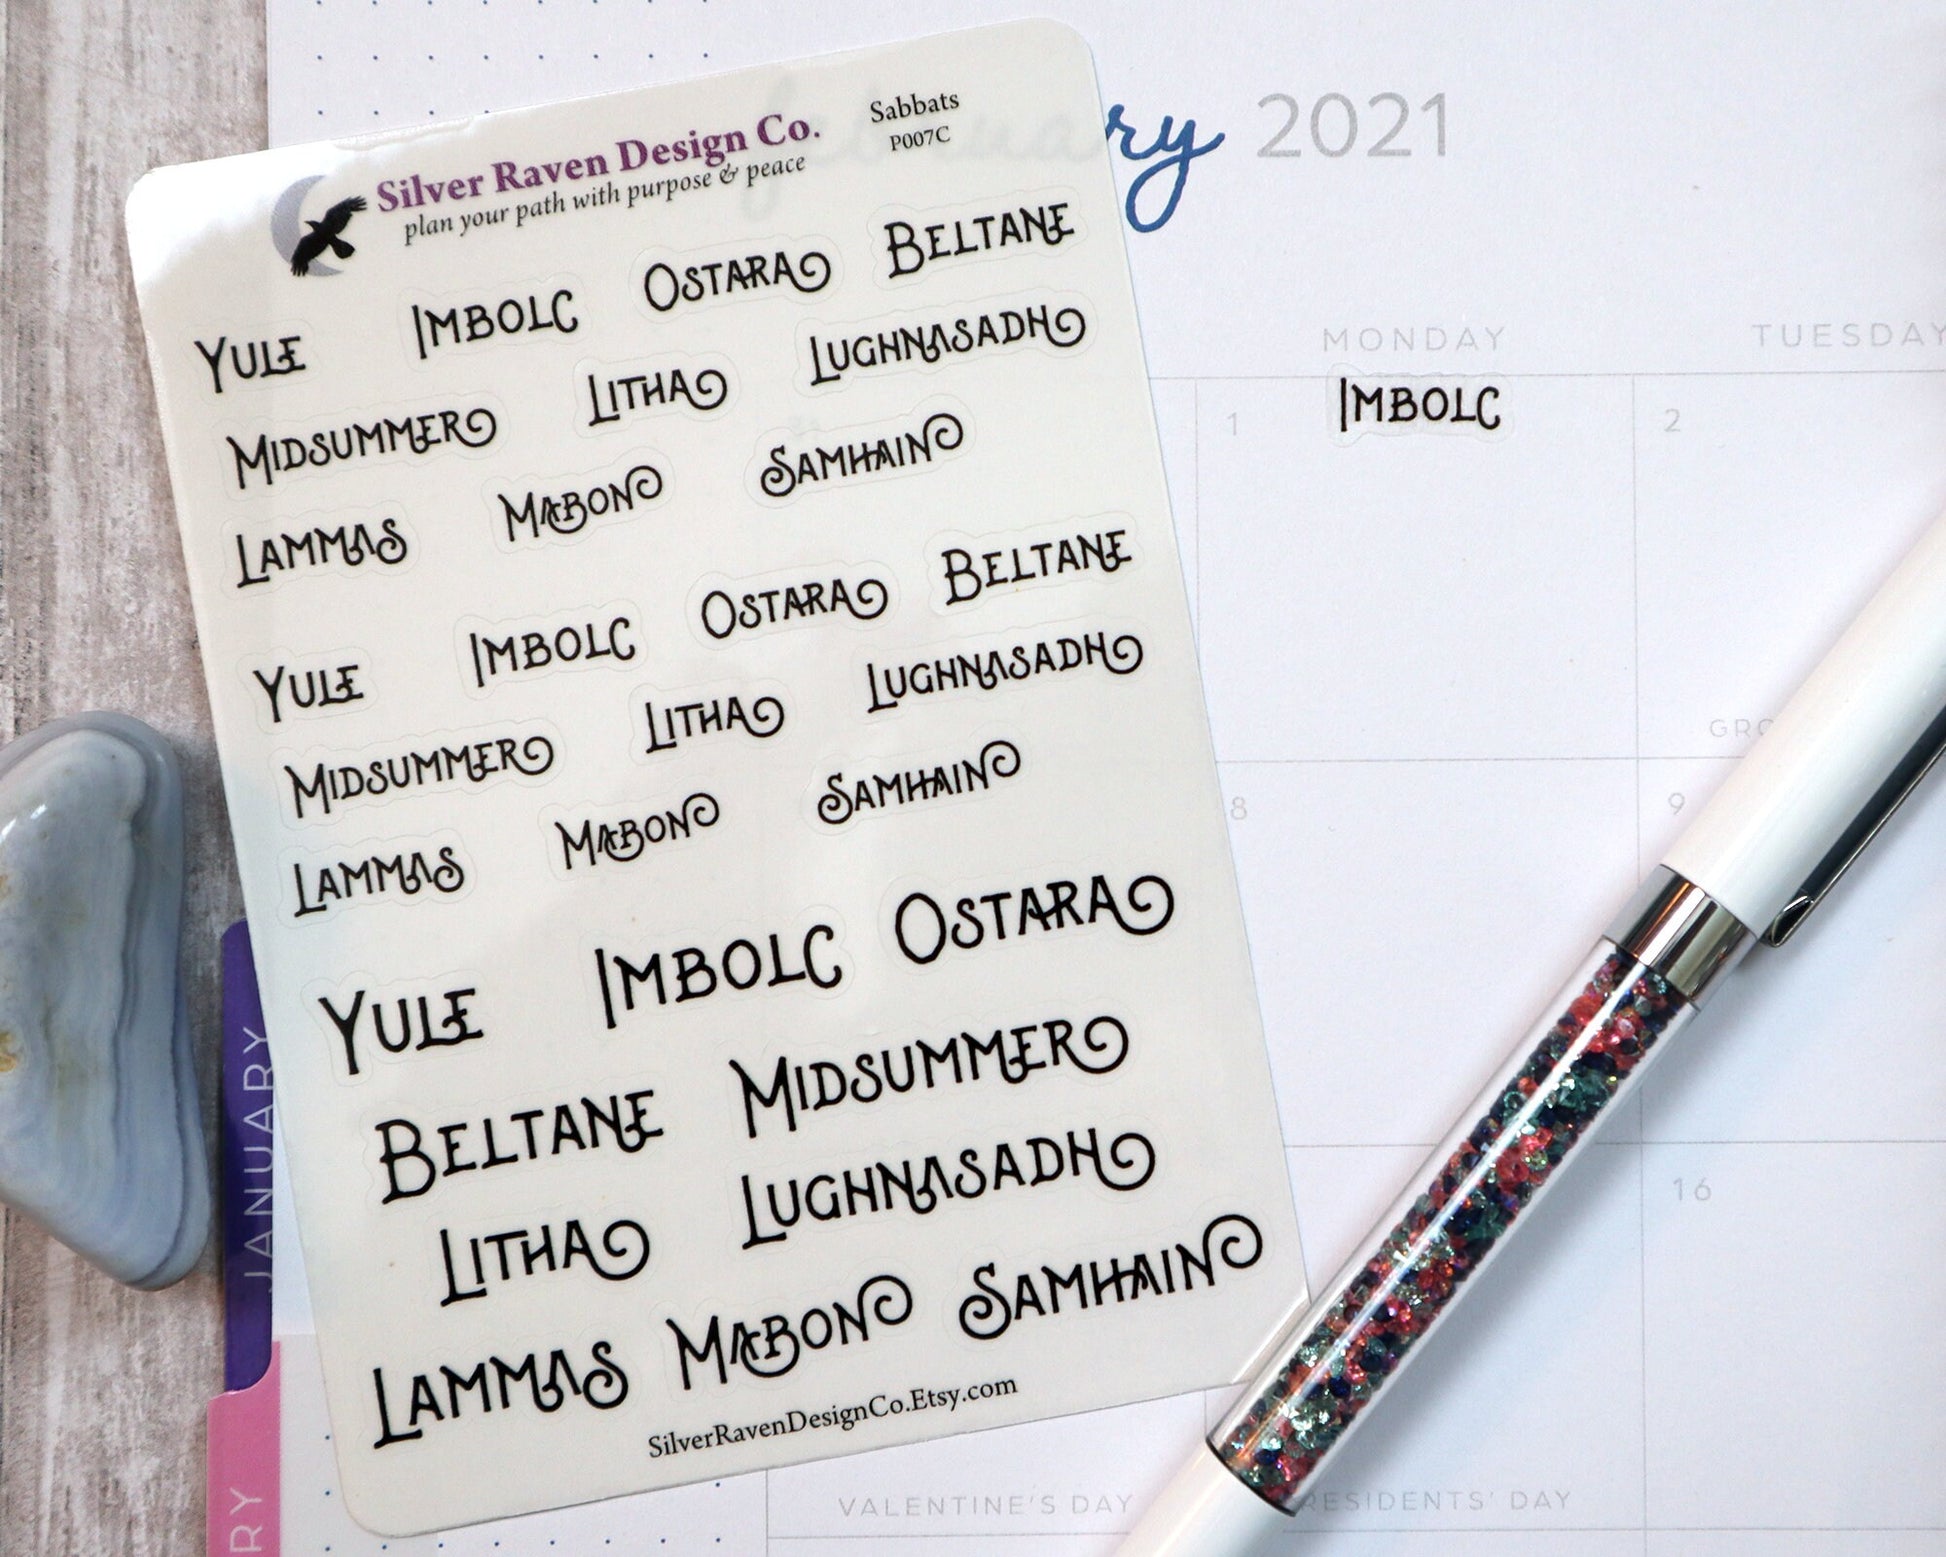 Silver Raven Design Co.
plan your path with purpose & peace
Sabbats
P007C
YULE IMBOLC OSTARA BELTANE
MIDSUMMER LITHA LUGHNASADH
LAMMAS MABON SAMHAIN
YULE IMBOLC OSTARA BELTANE
MIDSUMMER LITHA LUGHNASADH
LAMMAS MABON SAMHAIN
YULE IMBOLC OSTARA
BELTANE MIDSUMMER
LITHA LUGHNASADH
LAMMAS MABON SAMHAIN
SilverRavenDesignCo.Etsy.com
february 2021
MONDAY TUESDAY
1 IMBOLC 2
8 9
16
VALENTINE'S DAY
DAY
JANUARY